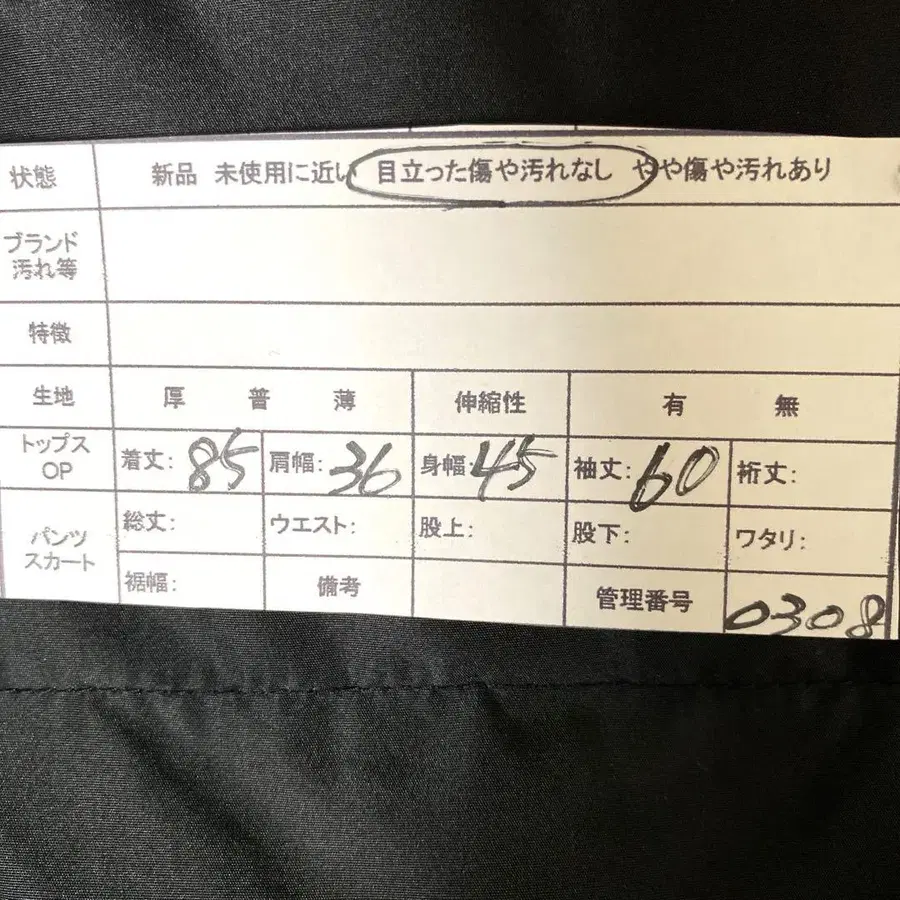 状態 新品 未使用に近い 目立った傷や汚れなし やや傷や汚れあり
ブランド
汚れ等
特徴
生地 厚 普 薄 伸縮性 有 無
トップス
OP
着丈: 85 肩幅: 36 身幅: 45 袖丈: 60 裄丈:
パンツ
スカート
総丈: ウエスト: 股上: 股下: ワタリ:
裾幅: 備考 管理番号 0308